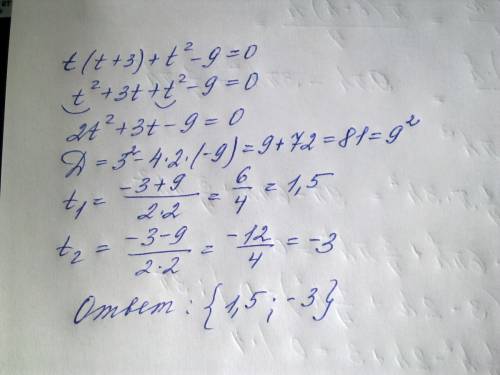 t(t+3)+t²-9=0
t²+3t+t²-9=0
2t²+3t-9=0
Д=3²-4·2·(-9)=9+72=81=9²
t₁= (-3+9)/(2·2) = 6/4 = 1,5
t₂= (-3-9)/(2·2) = -12/4 = -3
Ответ: {1,5; -3}